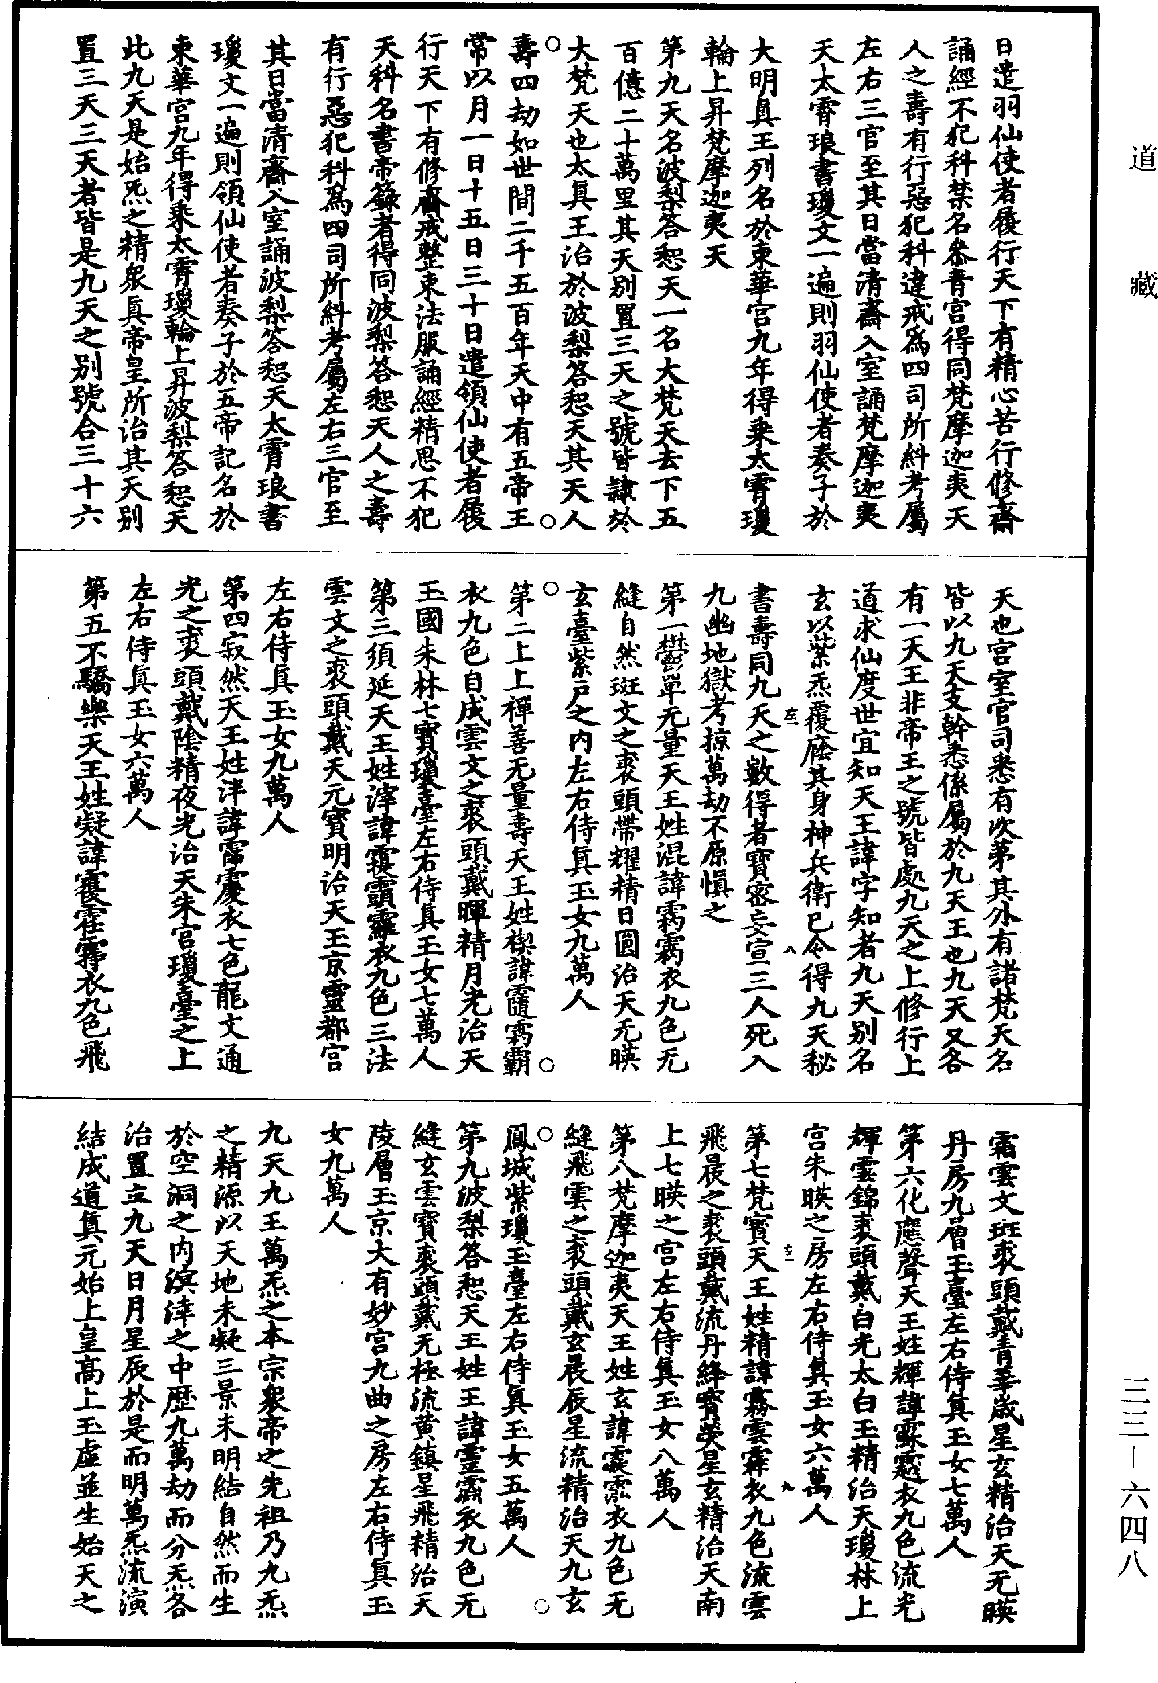 道藏
日遣羽仙使者履行天下有精心苦行修齋
誦經不犯科禁名參青宮得同梵摩迦夷天
人之壽有行惡犯科違戒爲四司所糾考屬
左右三官至其日當清齋入室誦梵摩迦夷
天太霄琅書瓊文一遍則羽仙使者奏子於
大明真王列名於東華宮九年得乘太霄瓊
輪上昇梵摩迦夷天
第九天名波梨答惒天一名大梵天去下五
百億二十萬里其天別置三天之號皆隸於
大梵天也太真王治於波梨答惒天其天人
壽四劫如世間二千五百年天中有五帝王
常以月一日十五日三十日遣領仙使者履
行天下有修齋戒整束法服誦經精思不犯
天科名書帝籙者得同波梨答惒天人之壽
有行惡犯科爲四司所糾考屬左右三官至
其日當清齋入室誦波梨答惒天太霄琅書
瓊文一遍則領仙使者奏子於五帝記名於
東華宮九年得乘太霄瓊輪上昇波梨答惒天
此九天是始炁之精衆真帝皇所治其天別
置三天三天者皆是九天之別號合三十六
天也宮室官司悉有次第其外有諸梵天名
皆以九天支幹悉係屬於九天王也九天又各
有一天王非帝王之號皆處九天之上修行上
道求仙度世宜知天王諱字知者九天別名
玄以紫炁覆廕其身神兵衛已令得九天秘
書壽同九天之數得者寶密妄宣三人死入
九幽地獄考掠萬劫不原慎之
第一鬱單无量天王姓混諱霐霿衣九色无
縫自然斑文之裘頭帶耀精日圓治天无暎
玄臺紫戶之內左右侍真玉女九萬人
第二上上禪善无量壽天王姓禊諱霾霿霸
衣九色自成雲文之裘頭戴暉精月光治天
王國朱林七寶瓊臺左右侍真玉女七萬人
第三須延天王姓滓諱霾霣霳衣九色三法
雲文之裘頭戴天元寶明治天王京靈都宮
左右侍真玉女九萬人
第四寂然天王姓泮諱霱衣七色龍文通
光之裘頭戴陰精夜光治天朱宮瓊臺之上
左右侍真玉女六萬人
第五不驕樂天王姓凝諱霾霍霧衣九色飛
霜雲文斑裘頭戴青華歲星玄精治天无暎
丹房九層玉臺左右侍真玉女七萬人
第六化應聲天王姓輝諱霡霆衣九色流光
輝雲錦裘頭戴白光太白玉精治天瓊林上
宮朱暎之房左右侍真玉女六萬人
第七梵寶天王姓精諱霧雲霏衣九色流雲
飛晨之裘頭戴流丹絳寶熒星玄精治天南
上七暎之宮左右侍真玉女八萬人
第八梵摩迦夷天王姓玄諱衣九色无
縫飛雲之裘頭戴玄晨辰星流精治天九玄
鳳城紫瓊玉臺左右侍真玉女五萬人
第九波梨答惒天王姓王諱靈霨衣九色无
縫玄雲寶裘頭戴无極流黃鎮星飛精治天
陵層玉京大有妙宮九曲之房左右侍真玉
女九萬人
九天九王萬炁之本宗衆帝之先祖乃九炁
之精源以天地未凝三景未明結自然而生
於空洞之內溟涬之中歷九萬劫而分炁各
治置立九天日月星辰於是而明萬炁流演
結成道真元始上皇高上玉虛並生始天之
三三—六四八